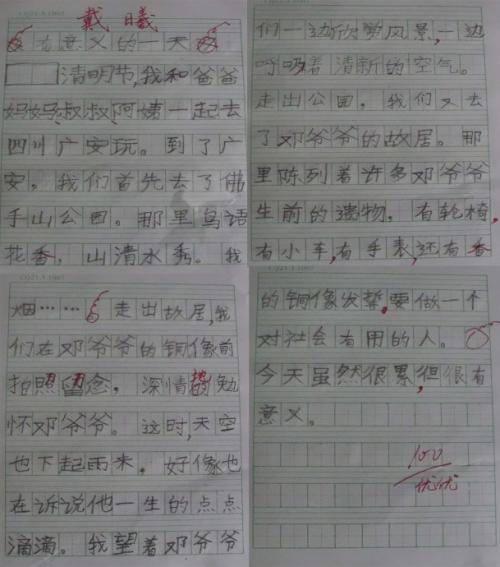 戴曦
有意义的一天
清明节,我和爸爸
妈妈,叔叔阿姨一起去
四川广安玩。到了广
安,我们首先去了佛
手山公园。那里鸟语
花香,山清水秀。我
们一边欣赏风景,一边
呼吸着清新的空气。
走出公园,我们又去
了邓爷爷的故居。那
里陈列着许多邓爷爷
生前的遗物,有轮椅,
有小车,有手表,还有香
烟……。走出故居,我
们在邓爷爷的铜像前
拍照留念,深情地勉
怀邓爷爷。这时,天空
也下起雨来,好像也
在诉说他一生的点点
滴滴。我望着邓爷爷
的铜像发誓,要做一个
对社会有用的人。
今天虽然很累,但很有
意义。
100
优优